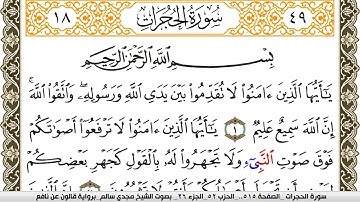 ١٨ سُورَةُ الحُجُرَاتِ ٤٩
بِسْمِ اللَّهِ الرَّحْمَٰنِ الرَّحِيمِ
يَٰٓأَيُّهَا ٱلَّذِينَ ءَامَنُوا۟ لَا تُقَدِّمُوا۟ بَيْنَ يَدَيِ ٱللَّهِ وَرَسُولِهِۦ وَٱتَّقُوا۟ ٱللَّهَ
إِنَّ ٱللَّهَ سَمِيعٌ عَلِيمٌ ١ يَٰٓأَيُّهَا ٱلَّذِينَ ءَامَنُوا۟ لَا تَرْفَعُوٓا۟ أَصْوَٰتَكُمْ
فَوْقَ صَوْتِ ٱلنَّبِىٓءِ وَلَا تَجْهَرُوا۟ لَهُۥ بِٱلْقَوْلِ كَجَهْرِ بَعْضِكُمْ
سورة الحجرات _ الصفحة ٥١٥ _ الحزب ٥٢ _ الجزء ٢٦ _ بصوت الشيخ مجدي سالم _ برواية قالون عن نافع